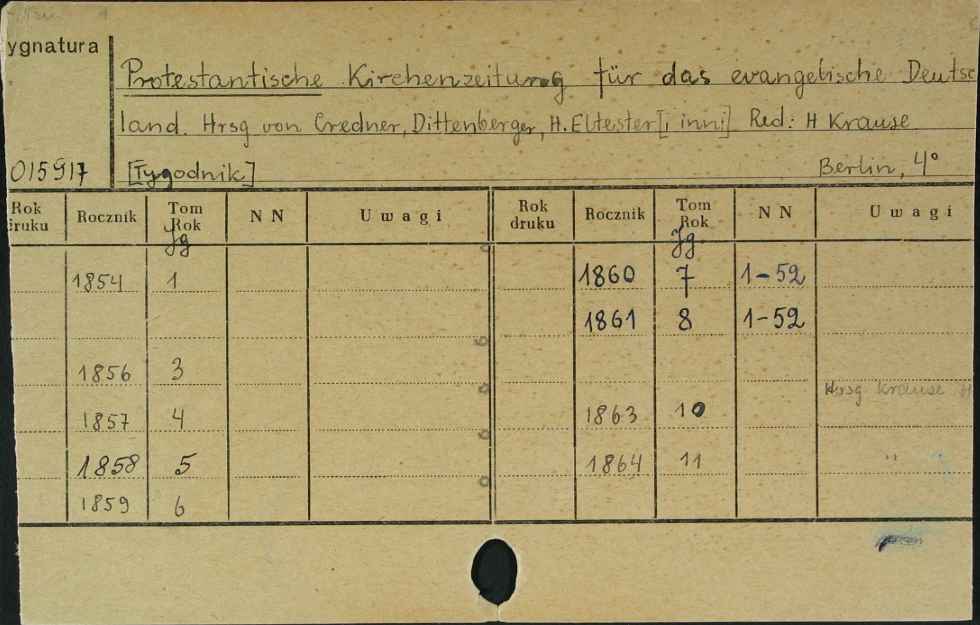 ygnatura
Protestantische Kirchenzeitung für das evangelische Deutsc
land. Hrsg von Credner, Dittenberger, H. Eltester [i inni] Red: H Krause
015917 [Tygodnik] Berlin, 4°
Rok druku Rocznik Tom Rok NN Uwagi Rok druku Rocznik Tom Rok NN Uwagi
Jg Jg.
1854 1 1860 7 1-52
1861 8 1-52
1856 3
Hrsg Krause H
1857 4 1863 10
1858 5 1864 11 "
1859 6